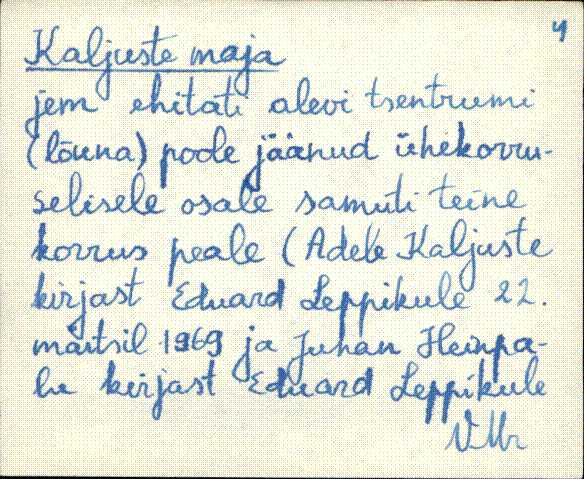 4
Kaljuste maja
jem ehitati alevi tsentrumi
(lõuna) poole jäänud ühekorru-
selisele osale samuti teine
korrus peale (Adele Kaljuste
kirjast Eduard Leppikule 22.
märtsil 1969 ja Juhan Heinpa-
lu kirjast Eduard Leppikule